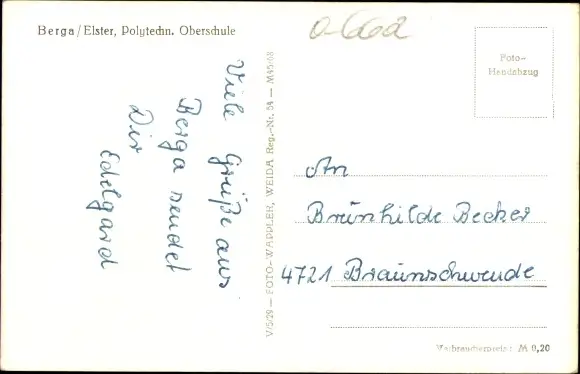 Berga/Elster, Polytechn. Oberschule
Viele Grüße aus
Berga sendet
Dir
Edelgard
V/5/29 — FOTO-WAPPLER, WEIDA Reg.-Nr. 54 — M45/68
Foto-
Handabzug
An
Brunhilde Becker
4721 Braunschwende
Verbraucherpreis: M 0,20